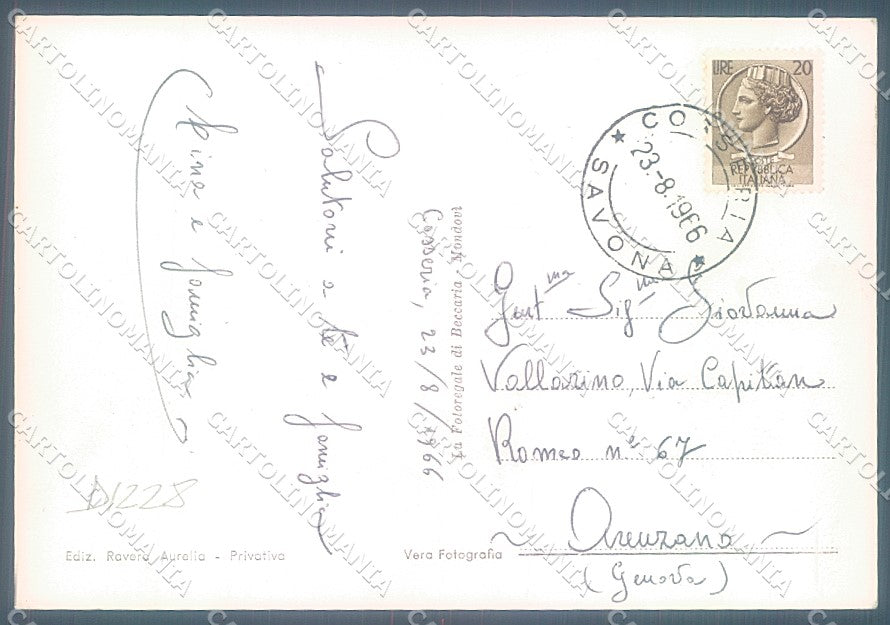 Cosseria, 23/8/1966
Salutoni a te e famiglia
e famiglia
Gent.ma Sig.na Giovanna
Vallarino, Via Capitan
Romeo n° 67
Arenzano
(Genova)
LIRE 20
POSTE
REPUBBLICA
ITALIANA
COSSERIA
SAVONA
23.-8.1966
La Fotoregale di Beccaria - Mondovì
D1228
Ediz. Ravera Aurelia - Privativa
Vera Fotografia
CARTOLINOMANIA